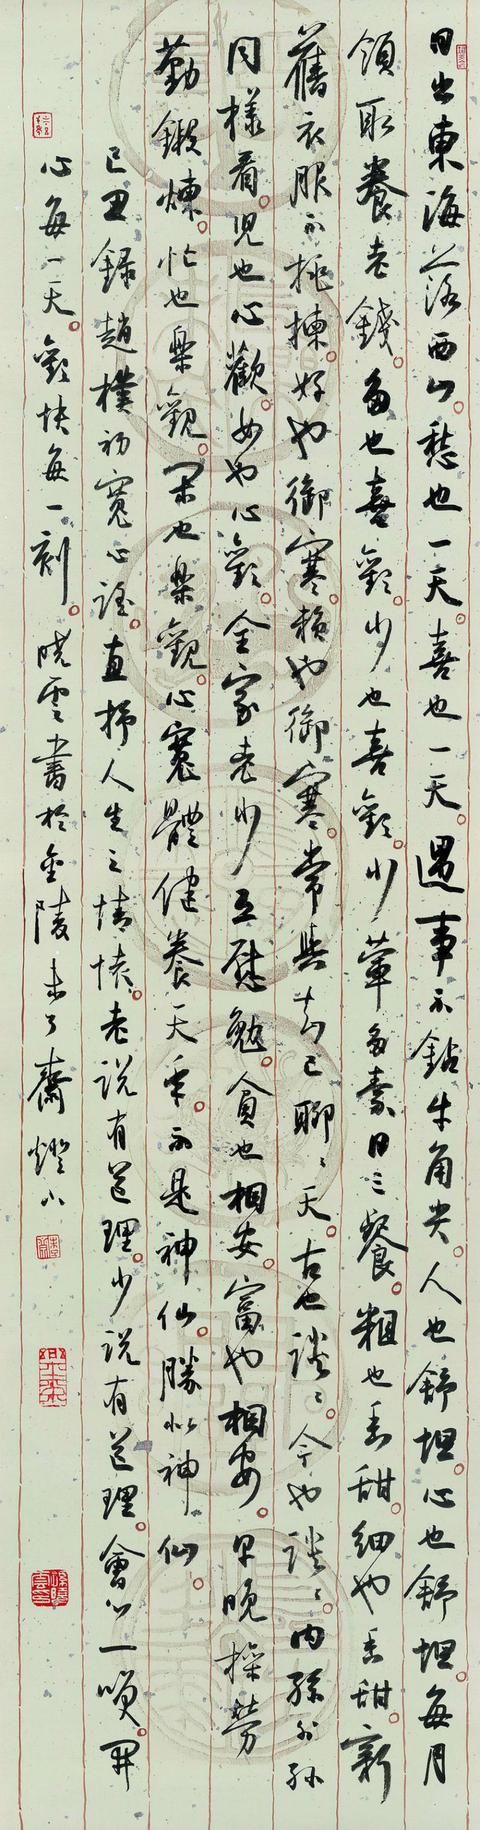 日出東海落西山。愁也一天。喜也一天。遇事不鈷牛角尖。人也舒坦。心也舒坦。每月
領取養老錢。多也喜歡。少也喜歡。少葷多素日三餐。粗也香甜。細也香甜。新
舊衣服不挑揀。好也御寒。賴也御寒。常與知己聊聊天。古也談談。今也談談。內孫外孫
同樣看。兒也心歡。女也心歡。全家老少互慰勉。貧也相安。富也相安。早晚操勞
勤鍛煉。忙也樂觀。閑也樂觀。心寬體健養天年。不是神仙。勝似神仙。
己丑錄趙樸初寬心謠。直抒人生之情懷。老說有道理。少說有道理。會心一喚。開
心每一天。歡快每一刻。曉雲書於金陵未了齋燈下